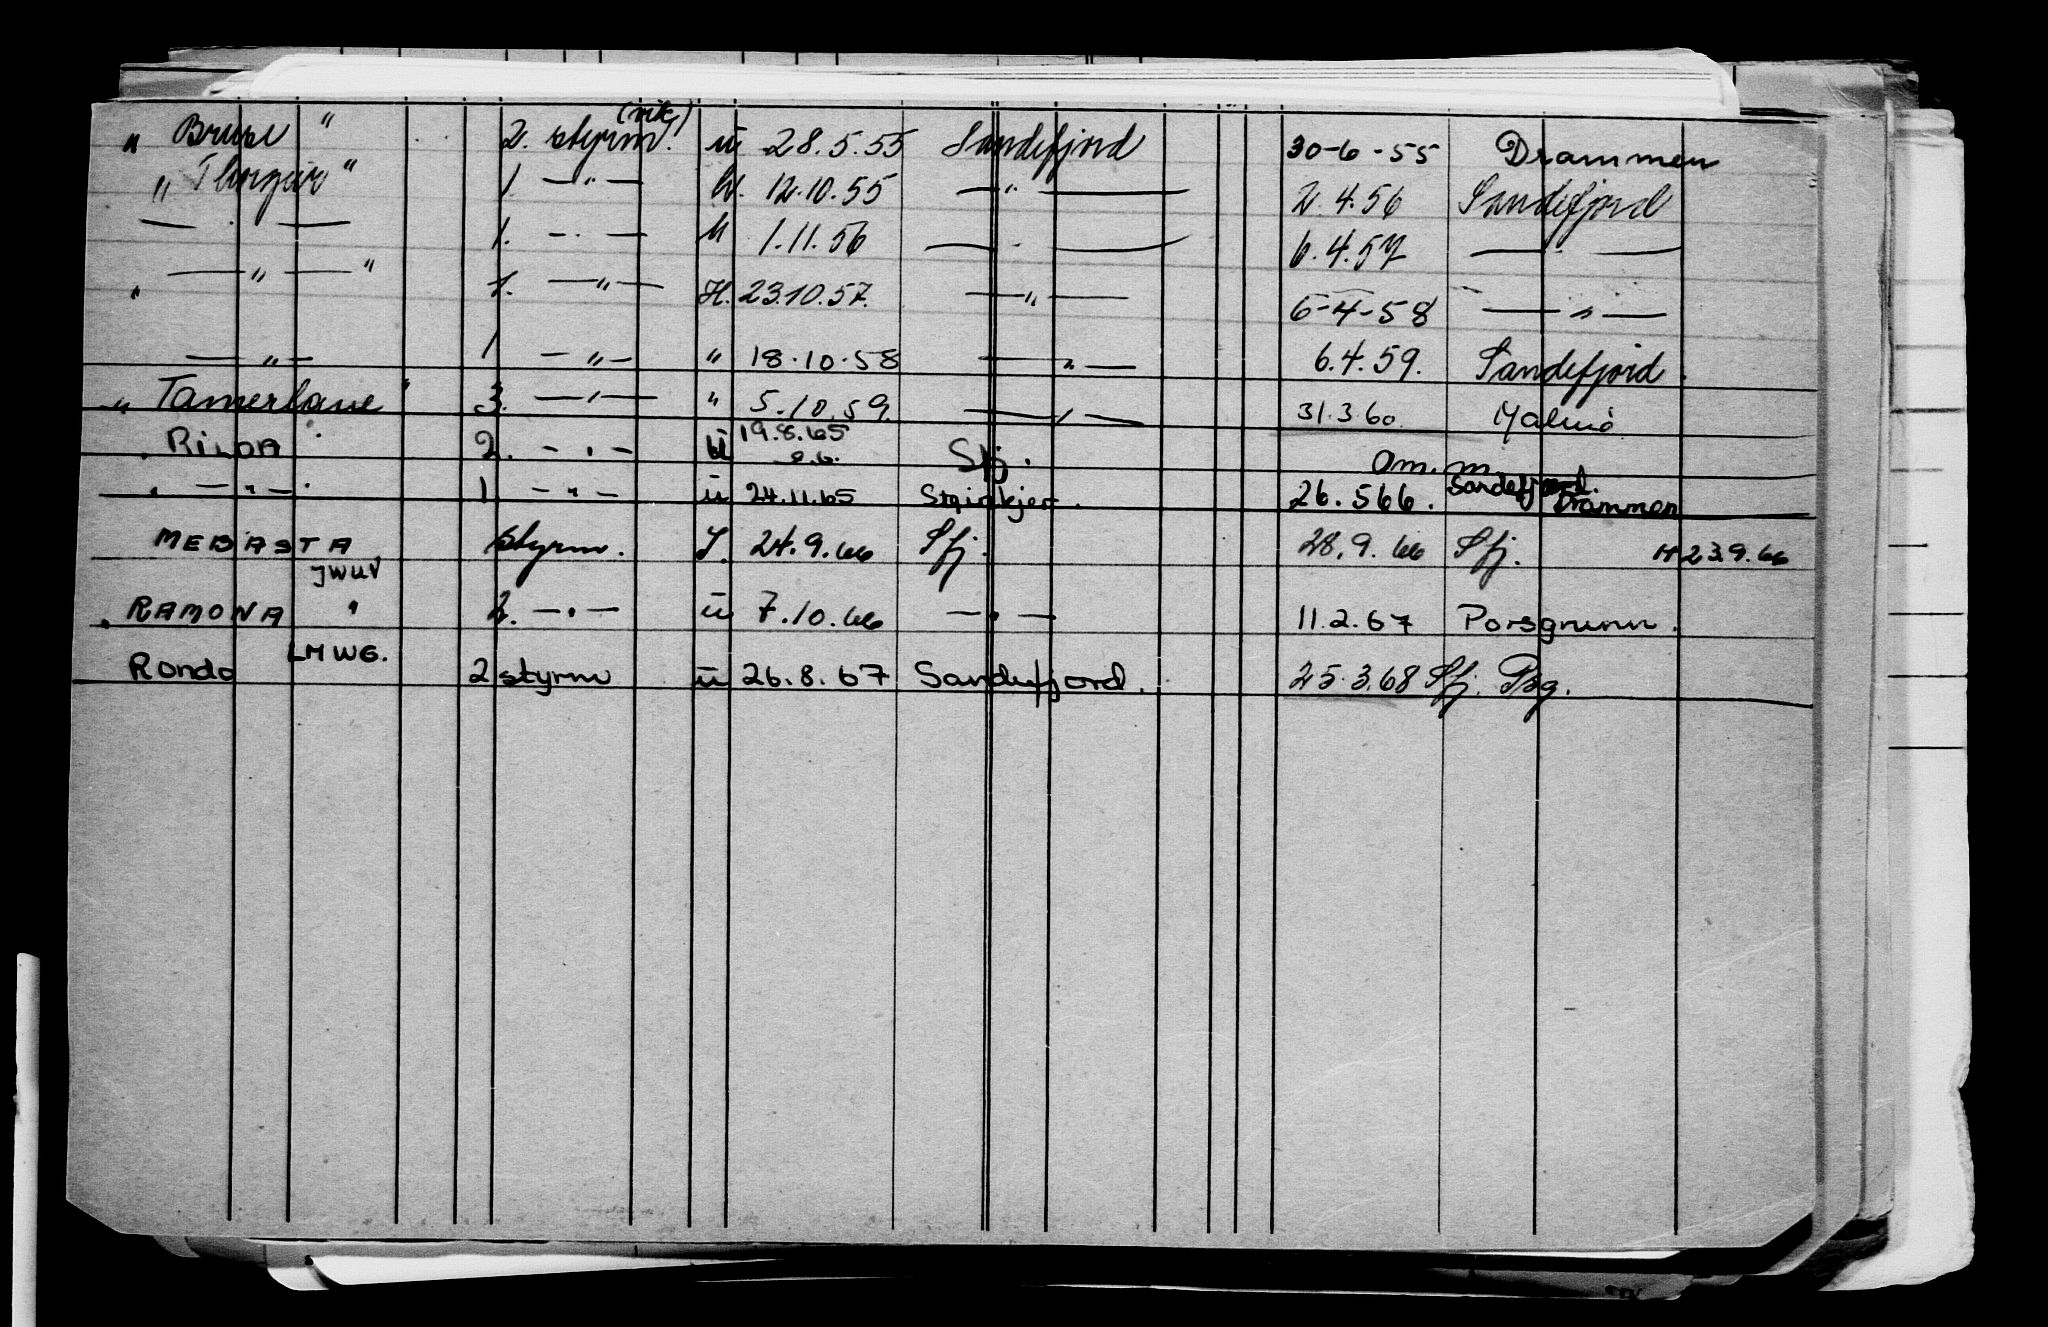 (vik.)
" Bruse " 2. styrm. ü 28.5.55 Sandefjord 30-6-55 Drammen
" Thorgeir " 1. —"— H. 12.10.55 —"— 2.4.56 Sandefjord
— . — 1. — . — H 1.11.56 — . — 6.4.57 — . —
" —"— " 1. —"— H. 23.10.57. —"— 6-4-58 —"—
—"— 1 —"— " 18-10-58 —"— 6.4.59. Sandefjord.
" Tamerlane " 3. —"— " 5.10.59. —"— 31.3.60. Malmö
" RILDA 2. —"— ü 19.8.65 Sfj. Om.m. Sandefjord.
" —"— " 1 —"— ü 24.11.65 Steinkjer. 26.566. Drammen
MEBASTA JWUV styrm. 24.9.66 Sfj. 28.9.66 Sfj. H 23.9.66
" RAMONA " 2. —"— ü 7.10.66 —"— 11.2.67 Porsgrunn.
Rondo LMWG. 2 styrm ü 26.8.67 Sandefjord. 25.3.68 Sfj. Psg.